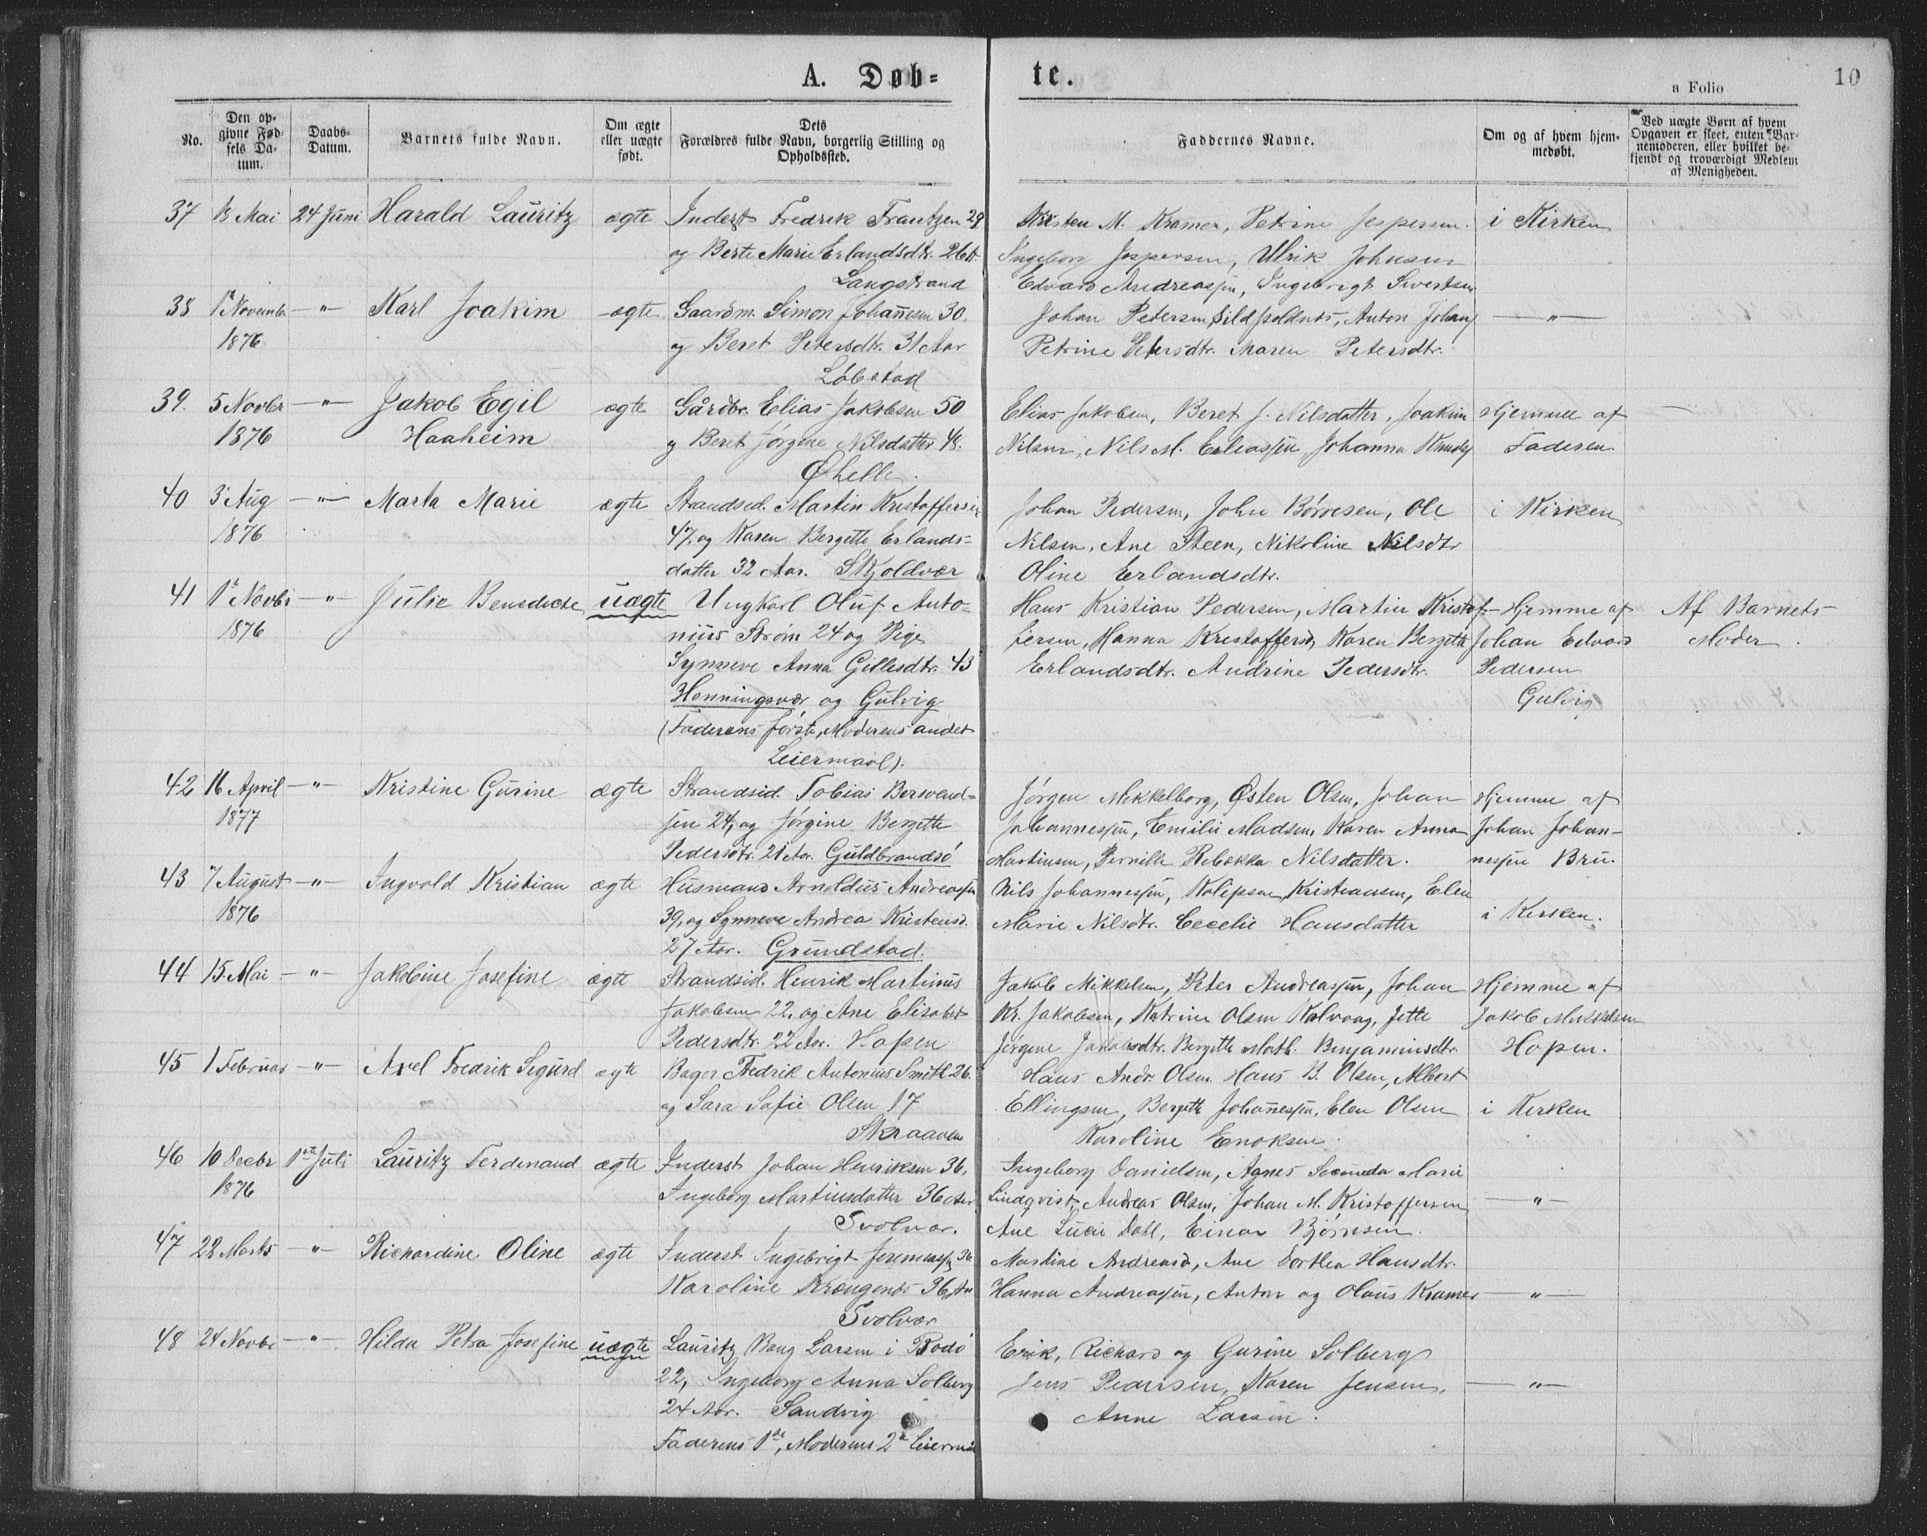 A. Døb-
te.
10
a Folio
No.
Den op-
givne Fød-
sels Da-
tum.
Daabs-
Datum.
Barnets fulde Navn.
Om ægte
eller uægte
født.
Dets
Forældres fulde Navn, borgerlig Stilling og
Opholdssted.
Faddernes Navne.
Om og af hvem hjem-
medøbt.
Ved uægte Børn af hvem
Opgaven er skeet, enten Bar-
nemoderen, eller hvilket be-
kjendt og troværdigt Medlem
af Menigheden.
37 13 Mai 24 Juni Harald Lauritz ægte Inderst Fredrik Frantzen 29
og Berte Marie Erlandsdtr. 26 A.
Langstrand
Kristen M. Kramer, Petrine Jespersen. i Kirken
Ingeborg Jespersen, Ulrik Johnsen
Edvard Andreassen, Ingebrigt Sivertsen
38 1 Novembr -"- Karl Joakim ægte Gaardm. Simon Johannesen 30.
1876 og Beret Petersdtr. 31 Aar
Løbstad
Johan Petersen Sildpoldnes, Anton Johans -"-
Petrine Petersdtr. Maren Petersdtr.
39. 5 Novbr -"- Jakob Egil ægte Gårdbr. Elias Jakobsen 50
1876 Haaheim og Beret Jørgine Nilsdatter 48.
Øhelle.
Elias Jakobsen, Beret J. Nilsdatter, Joakim Hjemme af
Nilsen, Nils M. Eliassen, Johanna Faderen
40 3 Aug -"- Marta Marie ægte Strandsid. Martin Kristoffersen
1876 47, og Karen Bergitte Erlands-
datter 32 Aar. Skjoldvær
Johan Pedersen, John Børresen, Ole i Kirken
Nilsen, Ane Steen, Nikoline Nilsdtr
Oline Erlandsdtr.
41 1 Novbr -"- Julie Benedicte uægte Ungkarl Oluf Anto-
1876 nius Strøm 24 og Pige
Synneve Anna Gellesdtr. 43
Henningsvær og Gulvig
(Faderens første, Moderens andet
Leiermaal).
Hans Kristian Pedersen, Martin Kristof- Hjemme af Af Barnets
fersen, Hanna Kristoffersd, Karen Bergitte Johan Edvard Moder.
Erlandsdtr. Andrine Pedersdtr. Pedersen
Gulvig
42 16 April -"- Kristine Gurine ægte Strandsid. Tobias Berwend-
1877 sen 24, og Jørgine Bergitte
Pedersdtr. 21 Aar. Guldbrandsø
Jørgen Mikkelborg, Østen Olsen, Johan Hjemme af
Johannessen, Emilie Madsen, Karen Anna Johan Johan-
Martinsen, Pernille Rebekka Nilsdatter. nessen Bru.
43 7 August -"- Ingvald Kristian ægte Husmand Arnoldus Andreassen
1876 39, og Synneve Andrea Kristensd.
27 Aar. Grundstad.
Nils Johannessen, Kristiansen, Elen
Marie Nilsdtr. Cecelie Hansdatter i Kirken.
44 15 Mai -"- Jakobine Josefine ægte Strandsid. Henrik Martinus
Jakobsen 22, og Ane Elisabet
Pedersdtr. 22 Aar. Hopen
Jakob Mikkelsen, Peter Andreassen, Johan Hjemme af
Kr. Jakobsen, Katrine Olsen Kalvaag, Jette Jakob Mikkelsen
Jørgine Jakobsdtr. Bergitte Math. Benjaminsdtr. Hopen.
45 1 Februar -"- Axel Fredrik Sigurd ægte Bager Fredrik Antonius Smith 26.
og Sara Sofie Olsen 17
Skraaven
Hans Andr. Olsen. Hans B. Olsen, Albert
Ellingsen, Bergitte Johannessen, Elen Olsen i Kirken
Karoline Enoksen.
46 10 Decbr 1ste Juli Lauritz Ferdinand ægte Inderst Johan Henriksen 36,
1876 Ingeborg Martinsdatter 36 Aar
Svolvær.
Ingeborg Danielsen, Agnes Secunda Marie
Lindqvist, Andreas Olsen, Johan M. Kristoffersen -"-
Ane Lucie Dahl, Einar Bjørnsen.
47 22 Marts -"- Richardine Oline ægte Inderst Ingebrigt Jeremiass. 36
Karoline Krængensd 36, Aar
Svolvær
Martine Andreasd, Ane Dorthea Hansdtr.
Hanna Andreassen, Anton og Olaus Kramer -"-
48 24 Novbr -"- Hilda Petra Josefine uægte Lauritz Bang Larsen i Bodø
22, Ingeborg Anna Solberg
24 Aar. Sandvig
Faderens 1ste, Moderens 2d Leierm.
Erik, Richard og Gurine Solberg
Jens Pedersen, Karen Jensen, -"-
Anne Larsen.